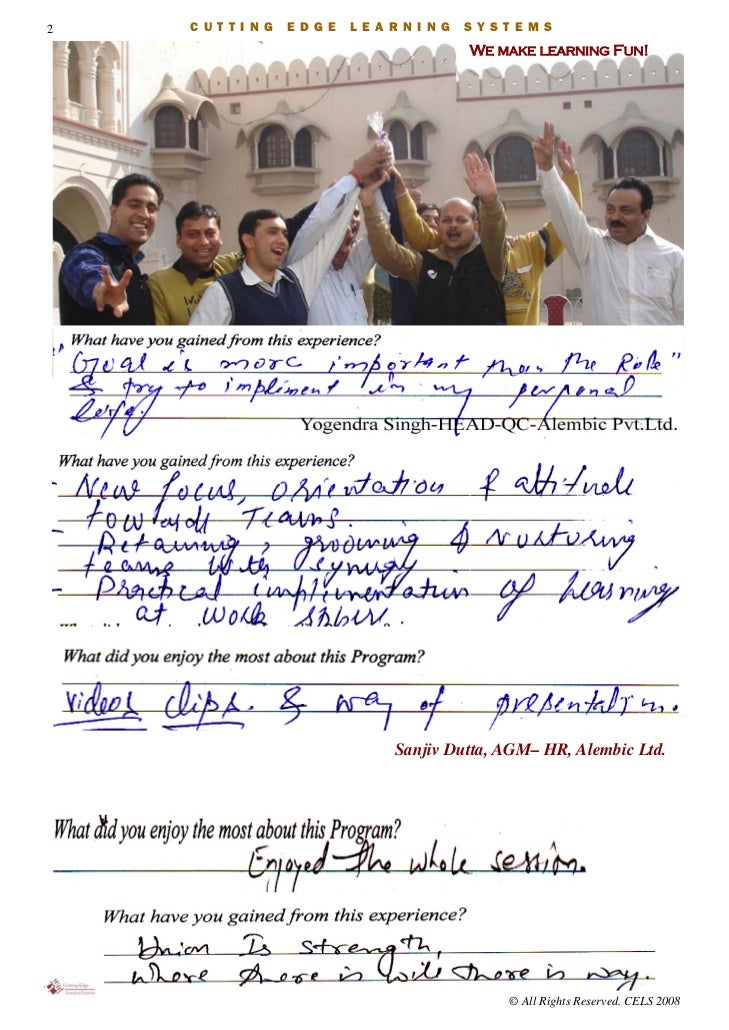 2
CUTTING EDGE LEARNING SYSTEMS
WE MAKE LEARNING FUN!
What have you gained from this experience?
" Goal is more important than the Role"
& try to impliment in my personal
Yogendra Singh-HEAD-QC-Alembic Pvt.Ltd.
What have you gained from this experience?
- New focus, orientation & attitude
towards Teams.
- Retaining, grooming & Nurturing
teams with synergy
- Practical implimentation of Learning
at work
What did you enjoy the most about this Program?
videos clips. & way of presentation.
Sanjiv Dutta, AGM– HR, Alembic Ltd.
What did you enjoy the most about this Program?
Enjoyed the whole session.
What have you gained from this experience?
Union Is strength,
where there is will there is way.
Cutting Edge
Learning Systems
© All Rights Reserved. CELS 2008